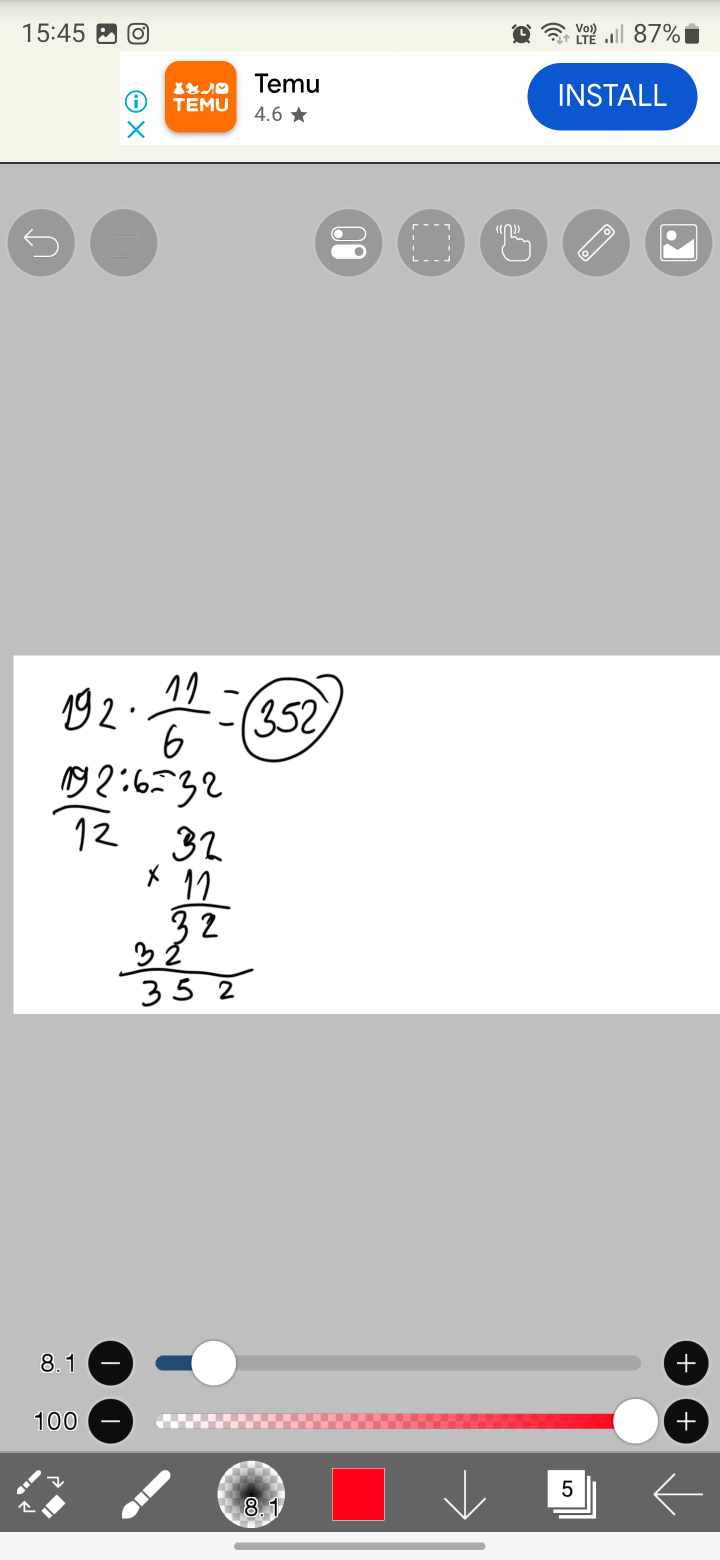 15:45 Vo)) LTE 87%
TEMU
Temu
4.6 ★
INSTALL
192 · 11/6 = 352
192:6=32
12
32
× 11
32
32
352
8.1
100
8.1
5